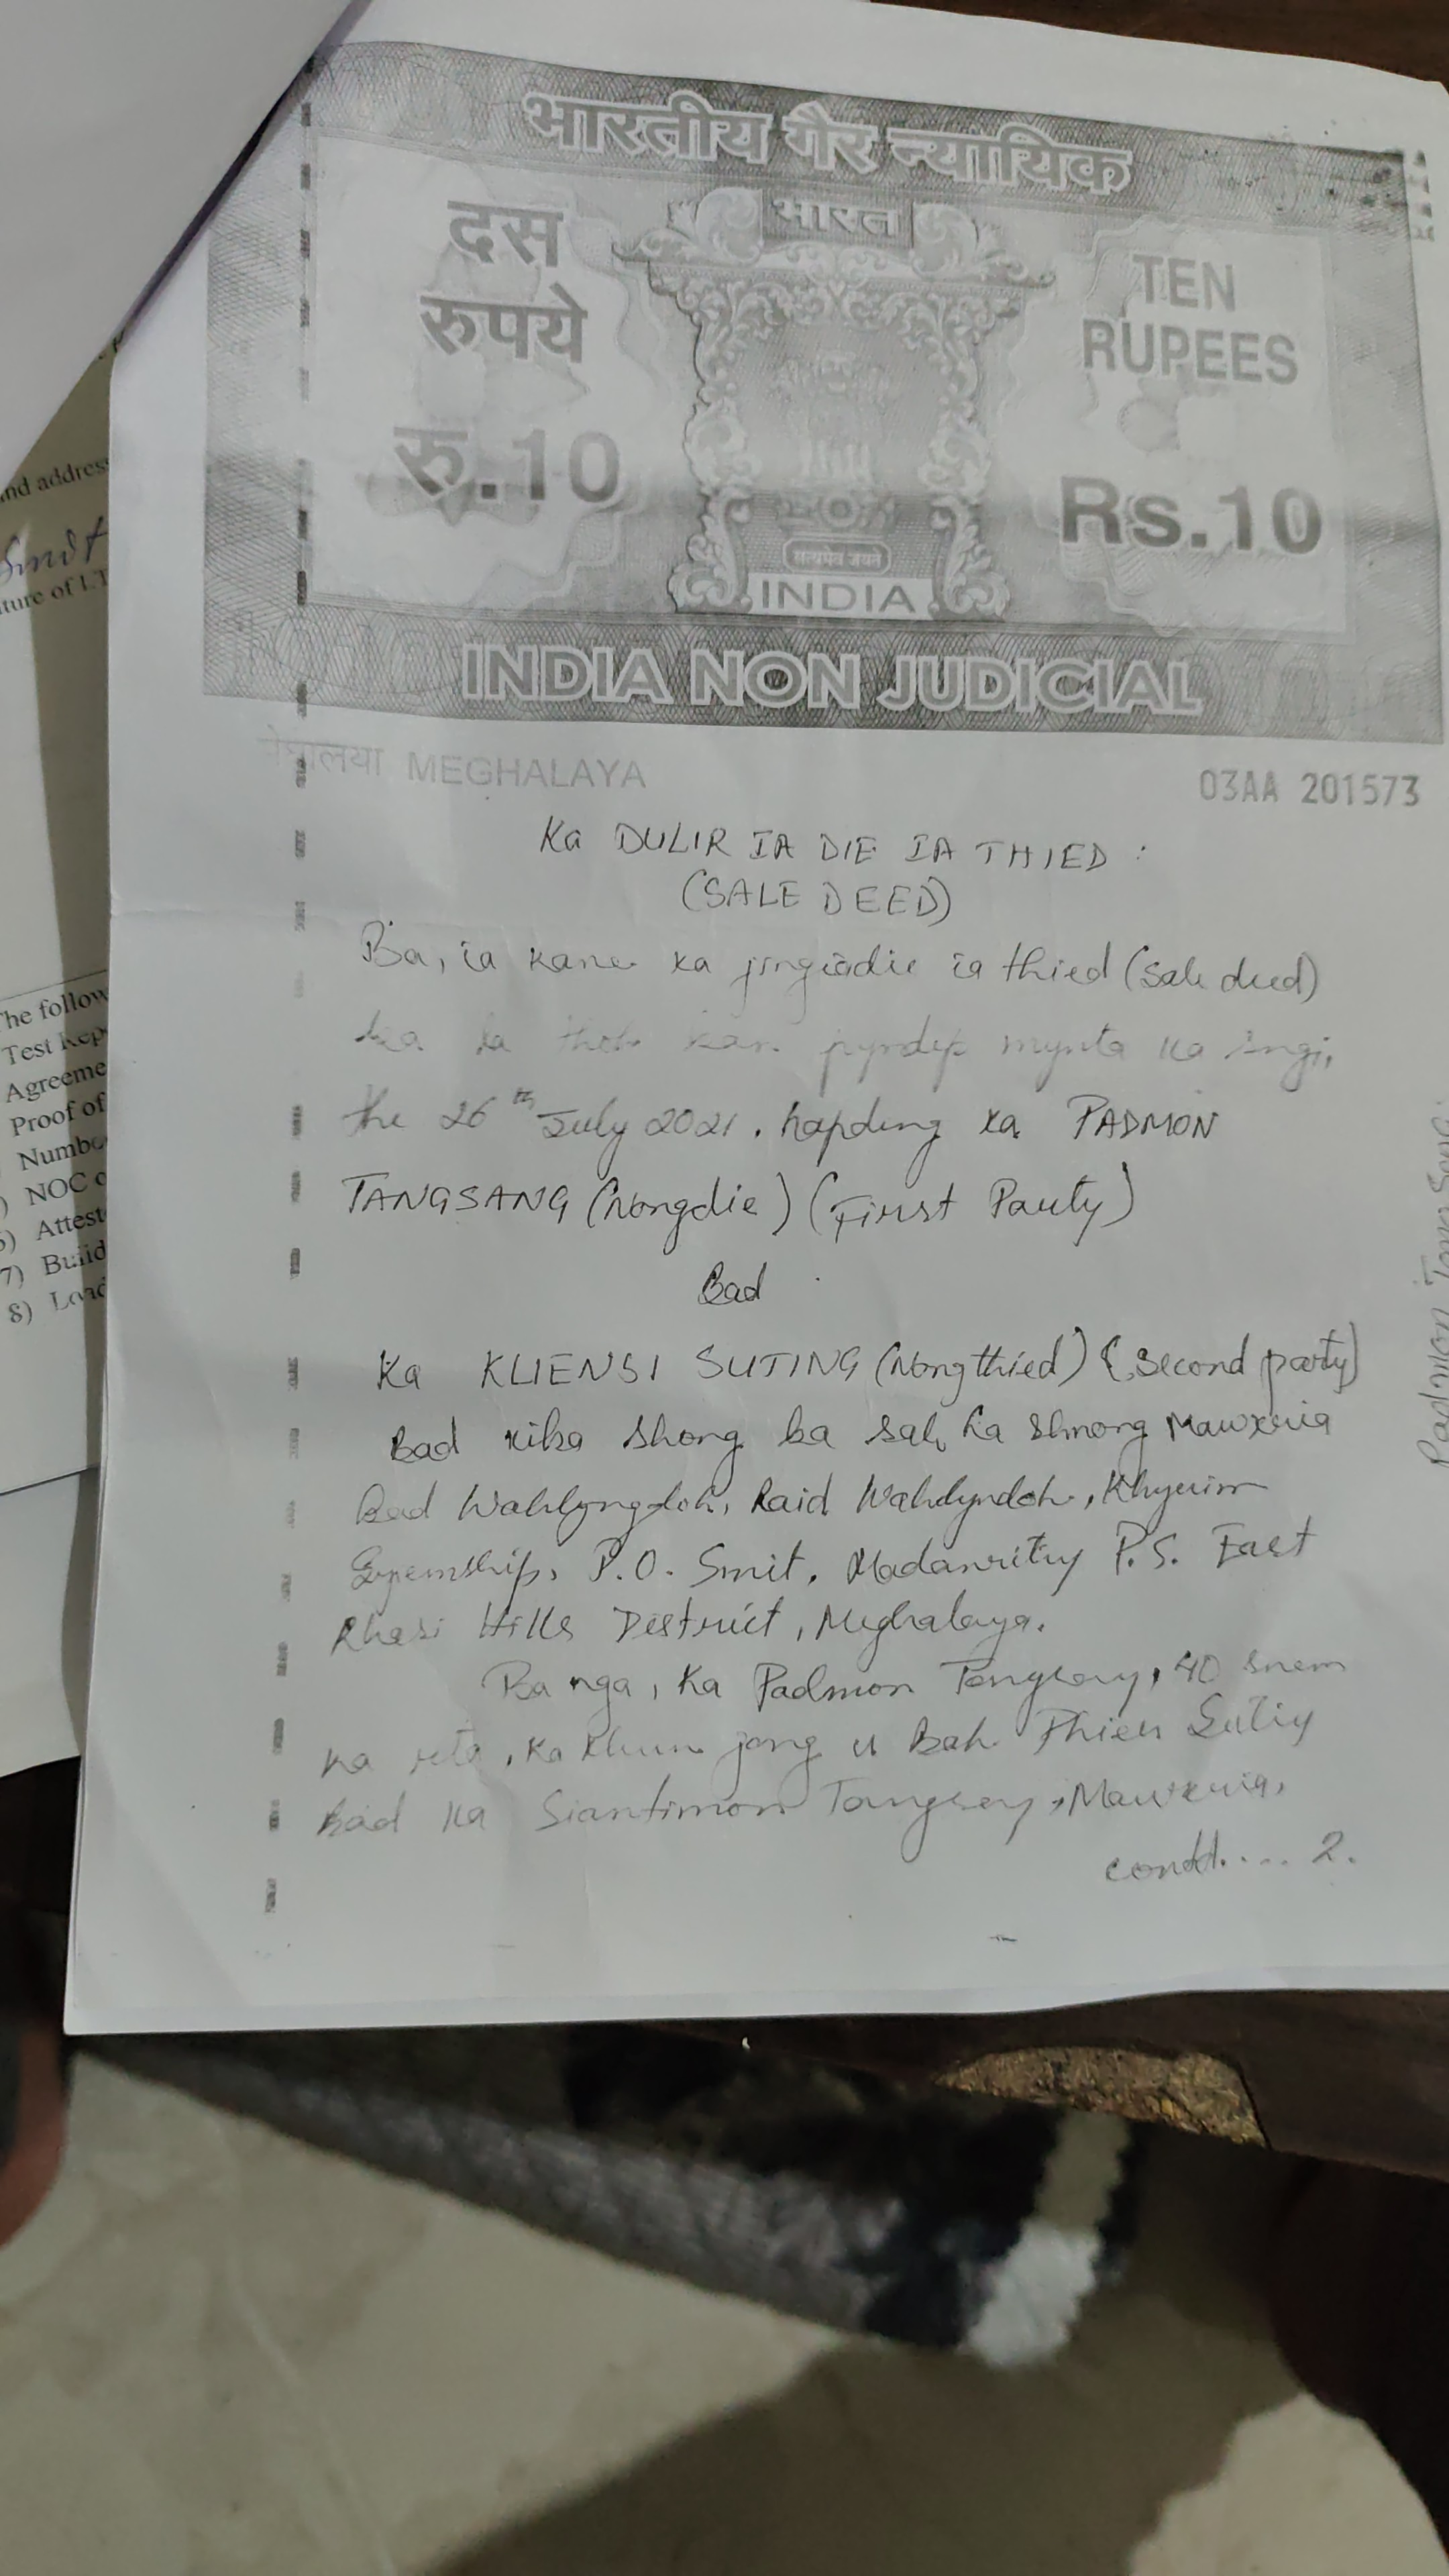 भारतीय गैर न्यायिक
भारत
दस
रुपये
रु.10
TEN
RUPEES
Rs.10
सत्यमेव जयते
INDIA
INDIA NON JUDICIAL
मेघालया MEGHALAYA
03AA 201573
Ka DULIR IA DIE IA THIED :
(SALE DEED)
Ba, ia kane ka jingiadie ia thied (Sale deed)
ba la thoh kan pyndep mynta ka sngi,
the 26th July 2021, hapdeng ka PADMON
TANGSANG (Nongdie) (First Party)
Bad
Ka KLIENSI SUTING (Nongthied) (Second party)
Bad kiba shong ba sah ha shnong Mawkria
Bad Wahlyngdoh, Raid Wahdyndoh, Khyrim
Syiemship, P.O. Smit, Madanriting P.S. East
Khasi Hills District, Meghalaya.
Ba nga, Ka Padmon Tangsang, 40 snem
ka rta, ka khun jong u Bah Phien Suting
Bad ka Siantimon Tangsang, Mawkria,
contd.... 2.
Padmon
and address
Smit
ture of LT
The follow
Test Rep
Agreeme
Proof of
Numbe
NOC o
Attest
7) Build
8) Load